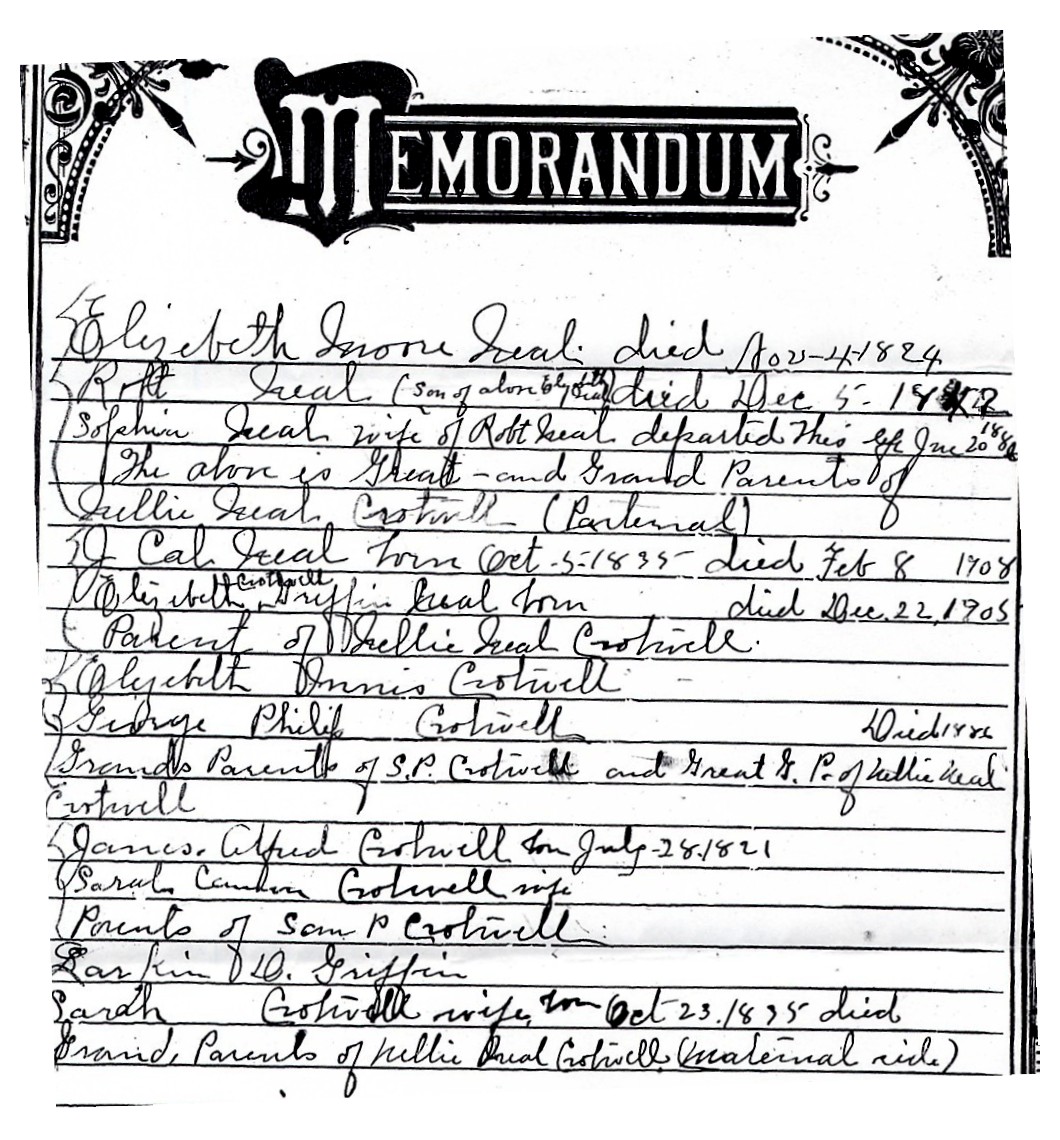 MEMORANDUM
Elizabeth Moore Neal died Nov-4-1824
Robt Neal (Son of above Elizabeth Neal) died Dec 5-
Sophia Neal wife of Robt Neal departed this life Jne 20
The above is Great-and Grand Parents of
Nellie Neal Crotwell (Parternal)
J Cal Neal born Oct-5-1835 died Feb 8 1908
Elizabeth Crotwell Griffin Neal born died Dec. 22, 1905
Parent of Nellie Neal Crotwell.
Elizebeth Innis Crotwell
George Philip Crotwell Died
Grands Parents of S.P. Crotwell and Great G. P. of Nellie Neal
Crotwell
James. Alfred Crotwell born July-28.1821
Sarah Crotwell wife
Parents of Sam P Crotwell
Larkin D. Griffin
Sarah Crotwell wife, born Oct 23. 1835 died
Grand, Parents of Nellie Neal Crotwell (Maternal side)